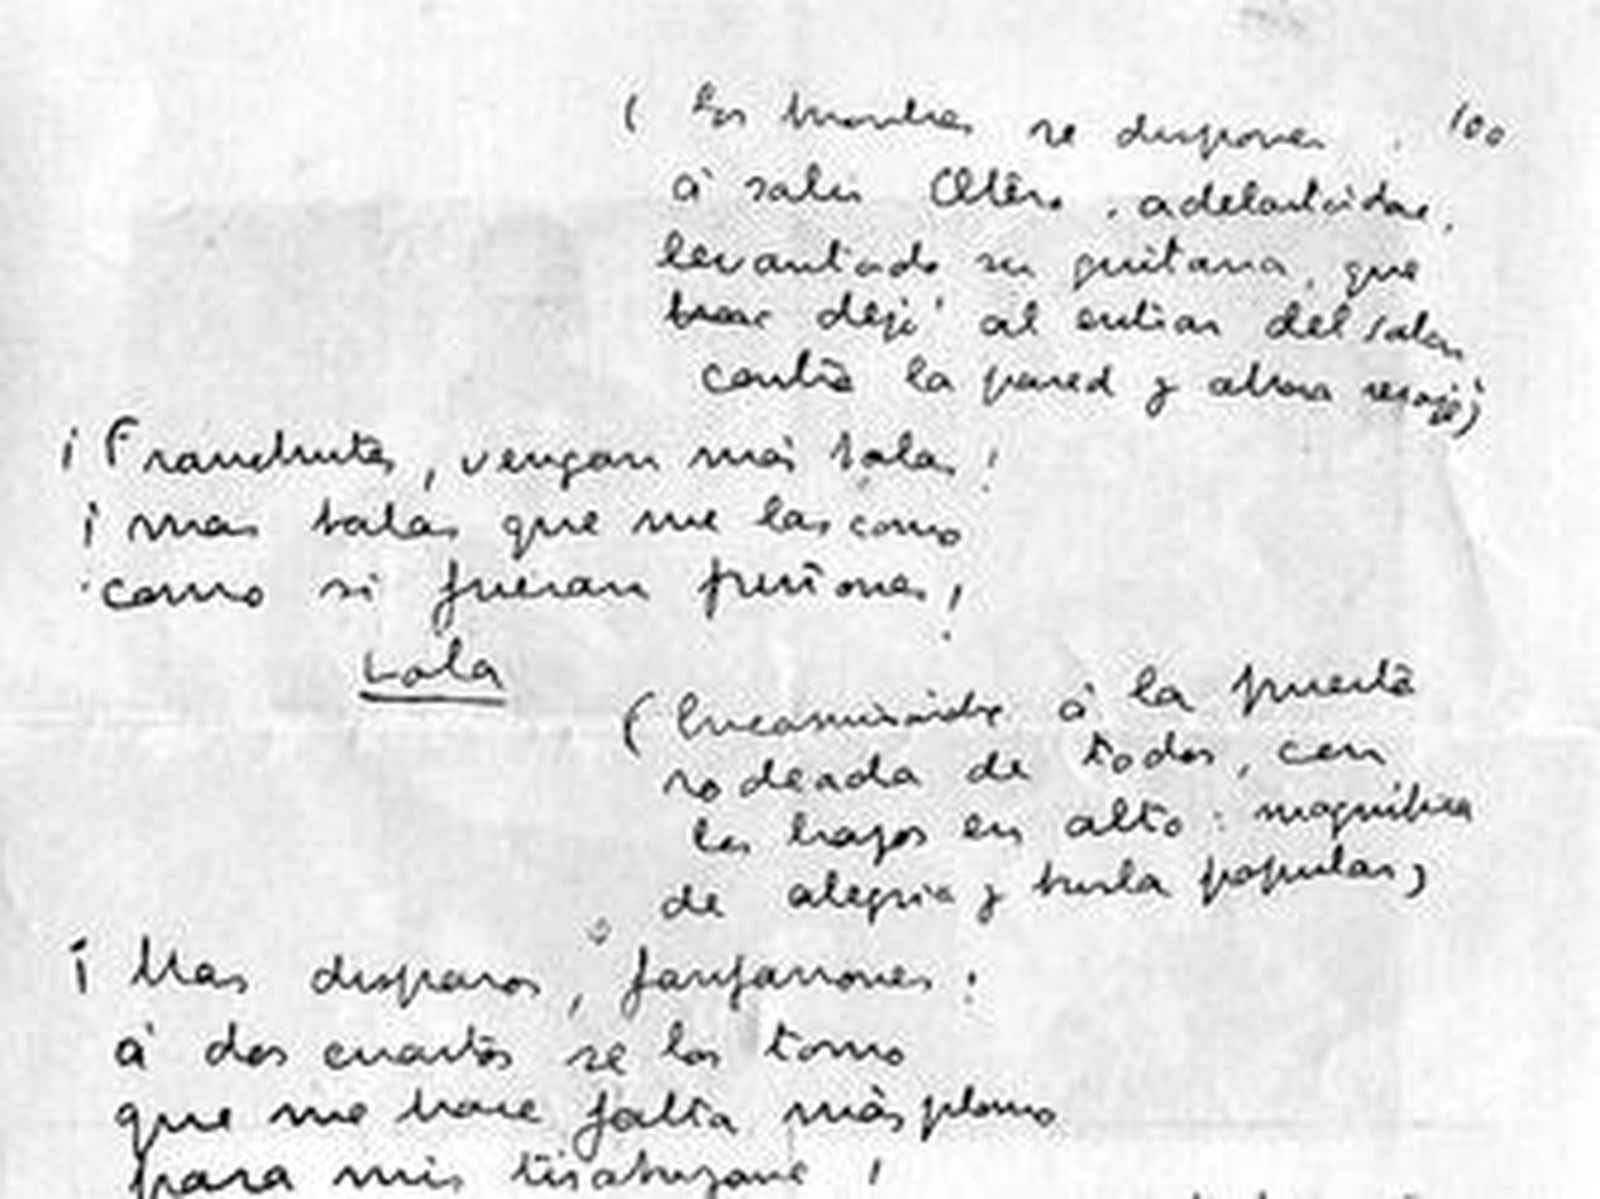 ( los hombres se disponen
100
á salir Otero, adelantándose,
levantando su guitarra, que
dejó al entrar del salón
contra la pared y ahora recogió)
¡Franchutes, vengan más balas!
¡mas balas que me las como
como si fueran piñones!
Lola
(Encaminándose á la puerta
rodeada de todos, con
los brazos en alto: magnífica
de alegria y burla popular)
¡Mas disparos, fanfarrones!
á dos cuartos se los tomo
que me hace falta más plomo
para mis tirabuzone!